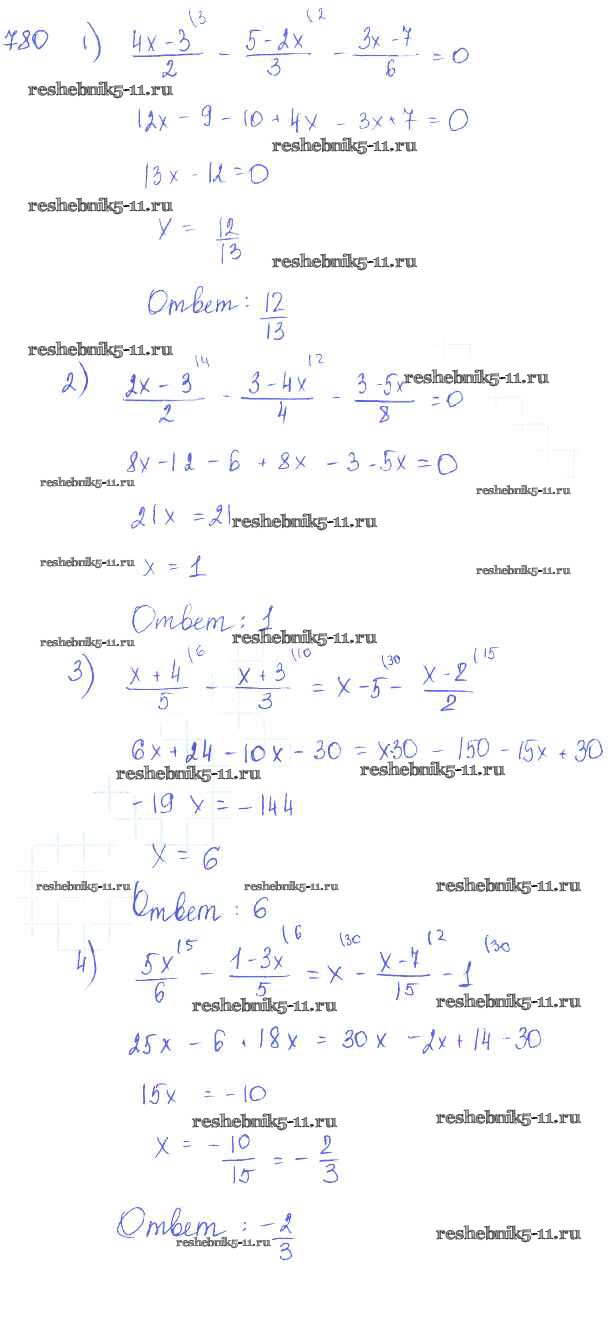 780 1) (4x-3)/2 (3 - (5-2x)/3 (2 - (3x-7)/6 = 0
reshebnik5-11.ru
12x - 9 - 10 + 4x - 3x + 7 = 0
reshebnik5-11.ru
13x - 12 = 0
reshebnik5-11.ru
x = 12/13
reshebnik5-11.ru
Ответ: 12/13
reshebnik5-11.ru
2) (2x-3)/2 (4 - (3-4x)/4 (2 - (3-5x)/8 = 0
reshebnik5-11.ru
8x - 12 - 6 + 8x - 3 - 5x = 0
reshebnik5-11.ru reshebnik5-11.ru
21x = 21
reshebnik5-11.ru
reshebnik5-11.ru x = 1 reshebnik5-11.ru
Ответ: 1
reshebnik5-11.ru reshebnik5-11.ru
3) (x+4)/5 (6 - (x+3)/3 (10 = x - 5 (30 - (x-2)/2 (15
6x + 24 - 10x - 30 = x30 - 150 - 15x + 30
reshebnik5-11.ru reshebnik5-11.ru
-19x = -144
x = 6
reshebnik5-11.ru reshebnik5-11.ru reshebnik5-11.ru
Ответ: 6
4) 5x/6 (5 - (1-3x)/5 (6 = x (30 - (x-7)/15 (2 - 1 (30
reshebnik5-11.ru reshebnik5-11.ru
25x - 6 + 18x = 30x - 2x + 14 - 30
15x = -10
reshebnik5-11.ru reshebnik5-11.ru
x = -10/15 = -2/3
Ответ: -2/3
reshebnik5-11.ru reshebnik5-11.ru